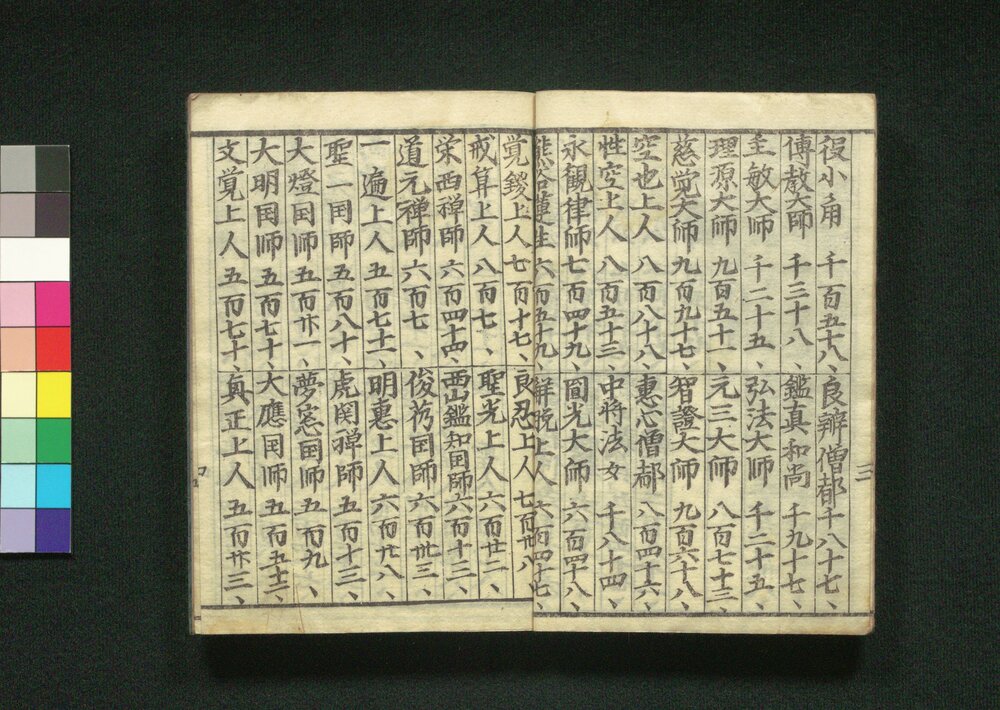 三
役小角 千百五十八、
良辨僧都 千八十七、
傳教大師 千三十八
鑑真和尚 千九十七、
圭敏大師 千二十五、
弘法大師 千二十五、
理源大師 九百五十一、
元三大師 八百七十三、
慈覚大師 九百九十七、
智證大師 九百六十八、
空也上人 八百八十八、
惠心僧都 八百四十六、
性空上人 八百五十三、
中将法女 千八十四、
永観律師 七百四十九、
圓光大師 六百四十八、
熊谷蓮生 六百五十九、
解脱上人 六百四十七、
覚鑁上人 七百十七、
良忍上人 七百卅八
戒算上人 八百七、
聖光上人 六百廿二、
栄西禅師 六百四十四、
西山鑑知国師 六百十三、
道元禅師 六百七、
俊芿国師 六百卅三、
一遍上人 五百七十一、
明惠上人 六百廿八、
聖一国師 五百八十、
虎関禅師 五百十三、
大燈国師 五百廿一、
夢窓国師 五百九、
大明国師 五百七十、
大應国師 五百五十二、
文覚上人 五百七十、
真正上人 五百廿三、